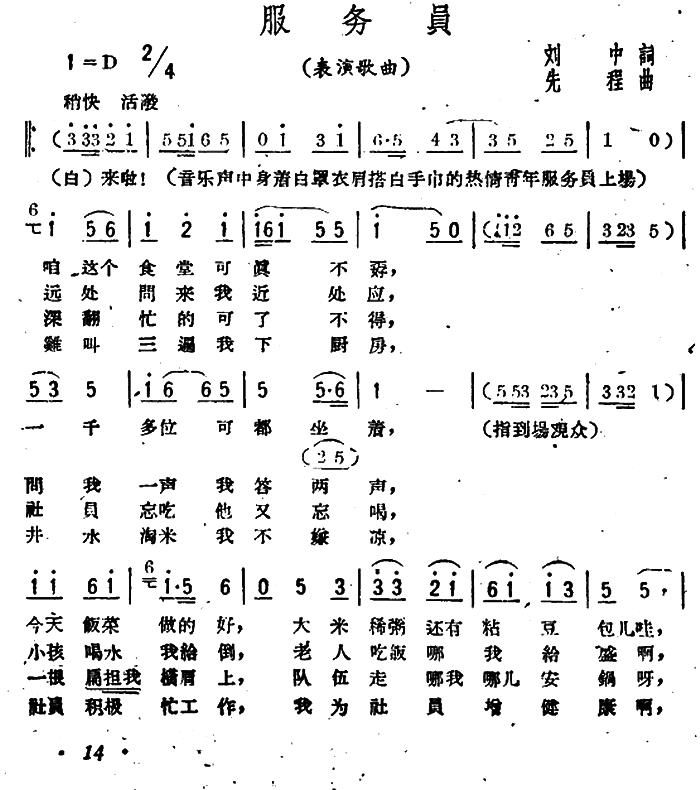 服务員
1=D 2/4
(表演歌曲)
刘中詞
先程曲
稍快 活潑
(3 33 2 1 | 5 5 1 6 5 | 0 1 3 1 | 6·5 4 3 | 3 5 2 5 | 1 0)
(白)来啦! (音乐声中身着白罩衣肩搭白手巾的热情青年服务員上場)
1 5 6 | 1 2 1 | 1 6 1 5 5 | 1 5 0 | (1 1 1 2 6 5 | 3 2 3 5)
咱这个食堂可眞不孬,
远处問来我近处应,
深翻忙的可了不得,
雞叫三遍我下厨房,
5 3 5 | 1 6 6 5 | 5 5·6 | 1 — | (5 5 3 2 3 5 | 3 3 2 1)
一千多位可都坐着, (指到場观众)
(2 5)
問我一声我答两声,
社員忘吃他又忘喝,
井水淘米我不嫌凉,
1 1 6 1 | 1·5 6 | 0 5 3 | 3 3 2 1 | 6 1 1 3 | 5 5,
今天飯菜做的好, 大米稀粥还有粘豆包儿哇,
小孩喝水我給倒, 老人吃飯哪我給盛啊,
一根扁担我橫肩上, 队伍走哪我哪儿安鍋呀,
社員积极忙工作, 我为社員增健康啊,
· 14 ·